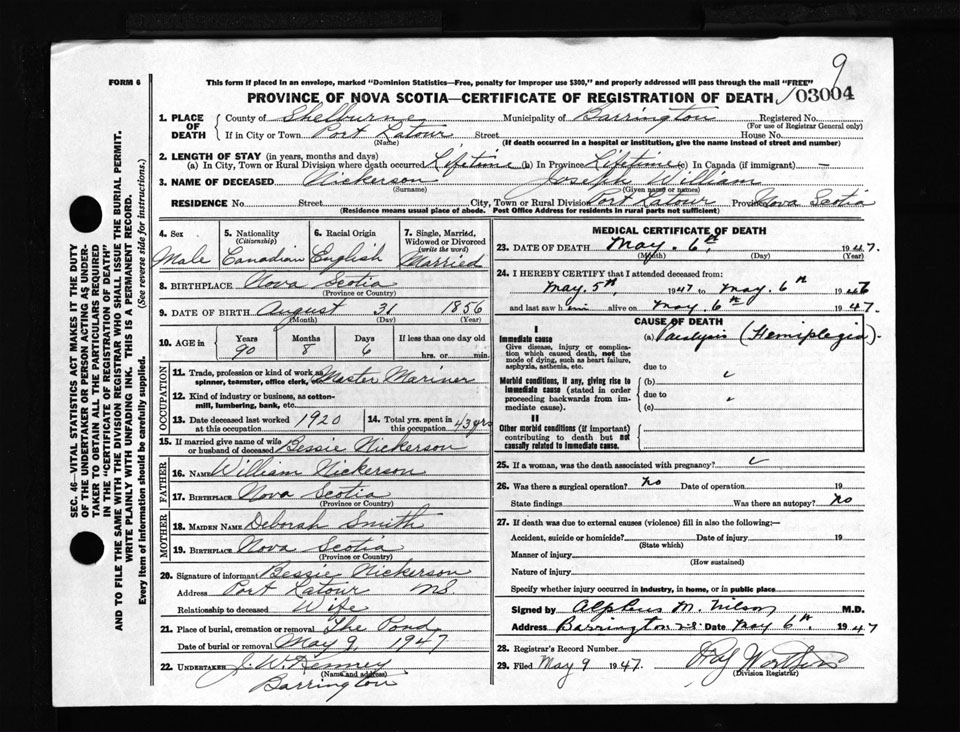 9
FORM 6
This form if placed in an envelope, marked "Dominion Statistics—Free, penalty for improper use $300," and properly addressed will pass through the mail "FREE"
PROVINCE OF NOVA SCOTIA—CERTIFICATE OF REGISTRATION OF DEATH
03004
1. PLACE OF DEATH
County of Shelburne Municipality of Barrington Registered No.
(For use of Registrar General only)
If in City or Town Port Latour Street House No.
(Name) (If death occurred in a hospital or institution, give the name instead of street and number)
2. LENGTH OF STAY (in years, months and days)
(a) In City, Town or Rural Division where death occurred Lifetime (b) In Province Lifetime (c) In Canada (if immigrant) —
3. NAME OF DECEASED Nickerson Joseph William
(Surname) (Given name or names)
RESIDENCE No. Street City, Town or Rural Division Port Latour Province Nova Scotia
(Residence means usual place of abode. Post Office Address for residents in rural parts not sufficient)
SEC. 46—VITAL STATISTICS ACT MAKES IT THE DUTY
OF THE UNDERTAKER OR PERSON ACTING AS UNDER-
TAKER TO OBTAIN ALL THE PARTICULARS REQUIRED
IN THE "CERTIFICATE OF REGISTRATION OF DEATH"
AND TO FILE THE SAME WITH THE DIVISION REGISTRAR WHO SHALL ISSUE THE BURIAL PERMIT.
WRITE PLAINLY WITH UNFADING INK. THIS IS A PERMANENT RECORD.
Every item of information should be carefully supplied. (See reverse side for instructions.)
4. Sex
Male
5. Nationality
(Citizenship)
Canadian
6. Racial Origin
English
7. Single, Married, Widowed or Divorced
(write the word)
Married
8. BIRTHPLACE Nova Scotia
(Province or Country)
9. DATE OF BIRTH August 31 1856
(Month) (Day) (Year)
10. AGE in
Years Months Days If less than one day old
90 8 6 hrs. or min.
OCCUPATION
11. Trade, profession or kind of work as
spinner, teamster, office clerk, Master Mariner
12. Kind of industry or business, as cotton-
mill, lumbering, bank, etc.
13. Date deceased last worked
at this occupation 1920
14. Total yrs. spent in
this occupation 43 yrs
15. If married give name of wife
or husband of deceased Bessie Nickerson
FATHER
16. NAME William Nickerson
17. BIRTHPLACE Nova Scotia
(Province or Country)
MOTHER
18. MAIDEN NAME Deborah Smith
19. BIRTHPLACE Nova Scotia
(Province or Country)
20. Signature of informant Bessie Nickerson
Address Port Latour NS
Relationship to deceased Wife
21. Place of burial, cremation or removal The Pond
Date of burial or removal May 9, 1947
22. UNDERTAKER J. W. Kenney
(Name and address)
Barrington
MEDICAL CERTIFICATE OF DEATH
23. DATE OF DEATH May. 6th 1947.
(Month) (Day) (Year)
24. I HEREBY CERTIFY that I attended deceased from:
May. 5th, 1947 to May. 6th 194
and last saw him alive on May. 6th 1947.
CAUSE OF DEATH
I
Immediate cause
Give disease, injury or complica-
tion which caused death, not the
mode of dying, such as heart failure,
asphyxia, asthenia, etc.
(a) Paralysis (Hemiplegia).
due to
Morbid conditions, if any, giving rise to
immediate cause (stated in order
proceeding backwards from im-
mediate cause).
(b)
due to
(c)
II
Other morbid conditions (if important)
contributing to death but not
causally related to immediate cause.
25. If a woman, was the death associated with pregnancy?
26. Was there a surgical operation? no Date of operation 19
State findings Was there an autopsy? no
27. If death was due to external causes (violence) fill in also the following:—
Accident, suicide or homicide? Date of injury 19
(State which)
Manner of injury
(How sustained)
Nature of injury
Specify whether injury occurred in industry, in home, or in public place
Signed by Alpheus M. Wilson M.D.
Address Barrington N.S. Date May 6th. 1947
28. Registrar's Record Number
29. Filed May 9 1947.
(Division Registrar)